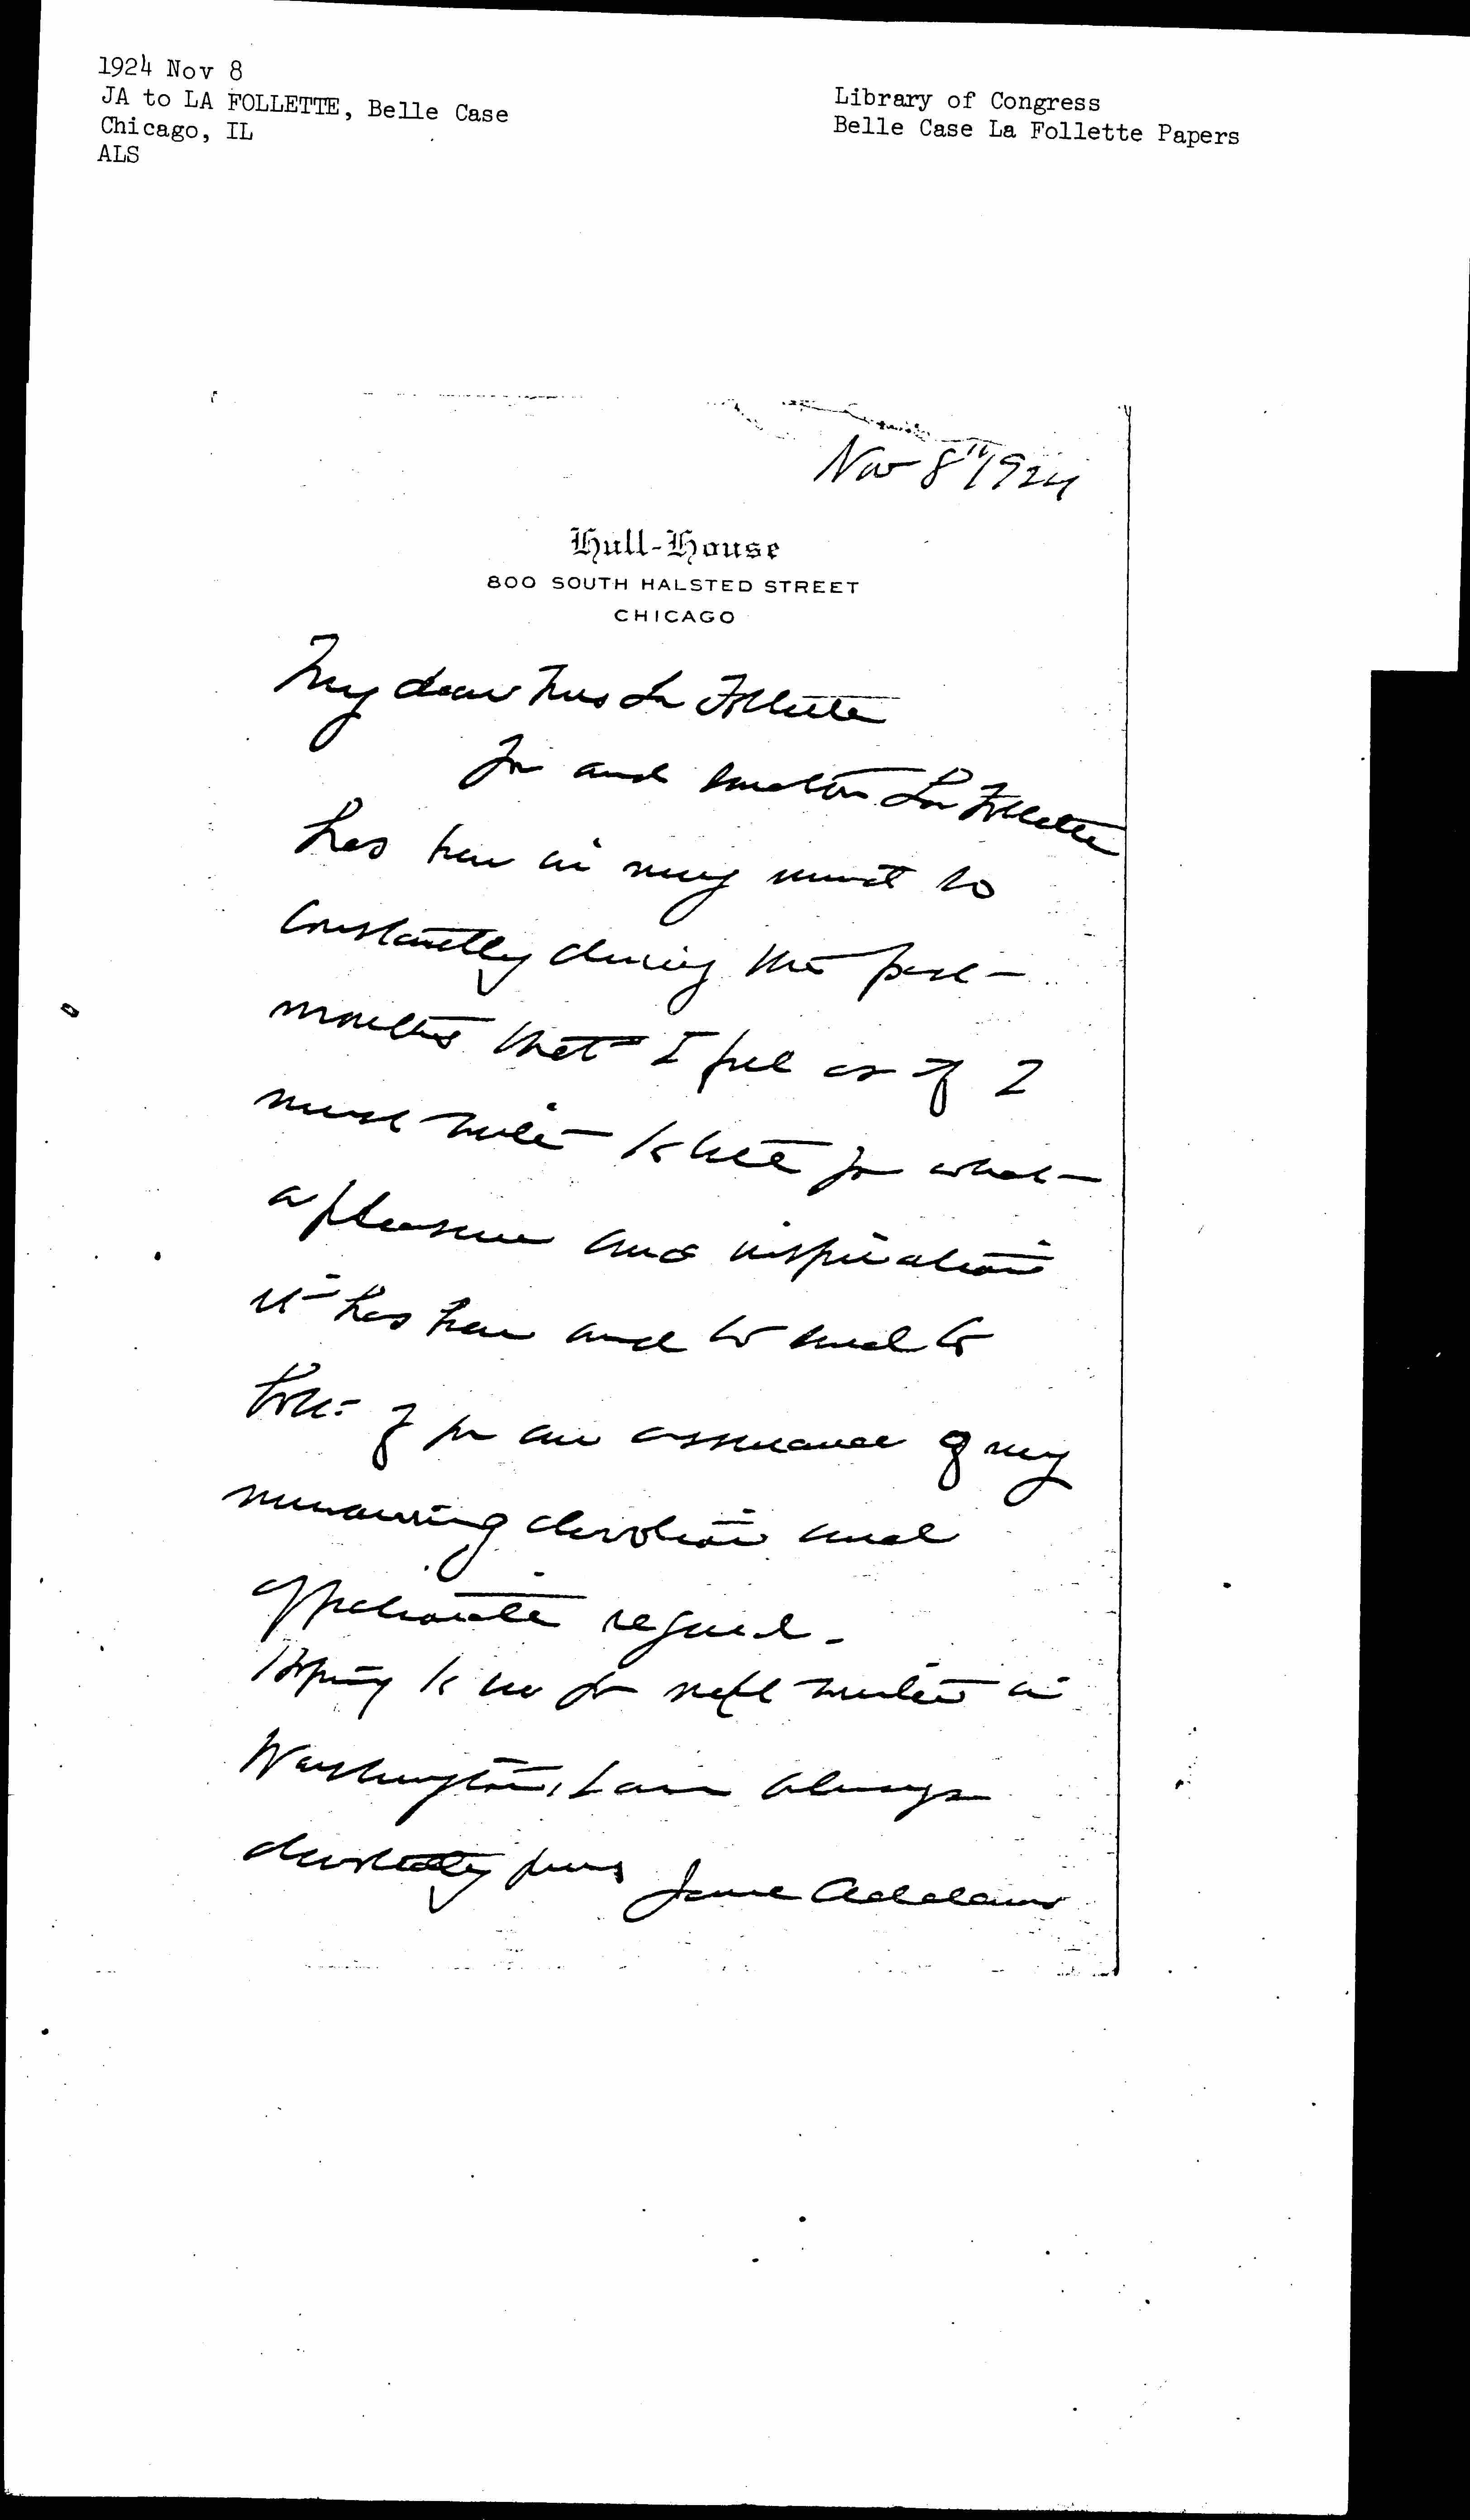 1924 Nov 8
JA to LA FOLLETTE, Belle Case
Chicago, IL
ALS
Library of Congress
Belle Case La Follette Papers
Nov 8" 1924
Hull-House
800 SOUTH HALSTED STREET
CHICAGO
My dear Mrs La Follette
You and Senator La Follette
has been in my mind so
constantly during the past
months that I feel as if I
must write to tell you what
a pleasure and inspiration
it has been and to send to
both of you an assurance of my
unwavering devotion and
affectionate regard.
Hoping to see you next winter in
Washington, I am always
devotedly yours Jane Addams